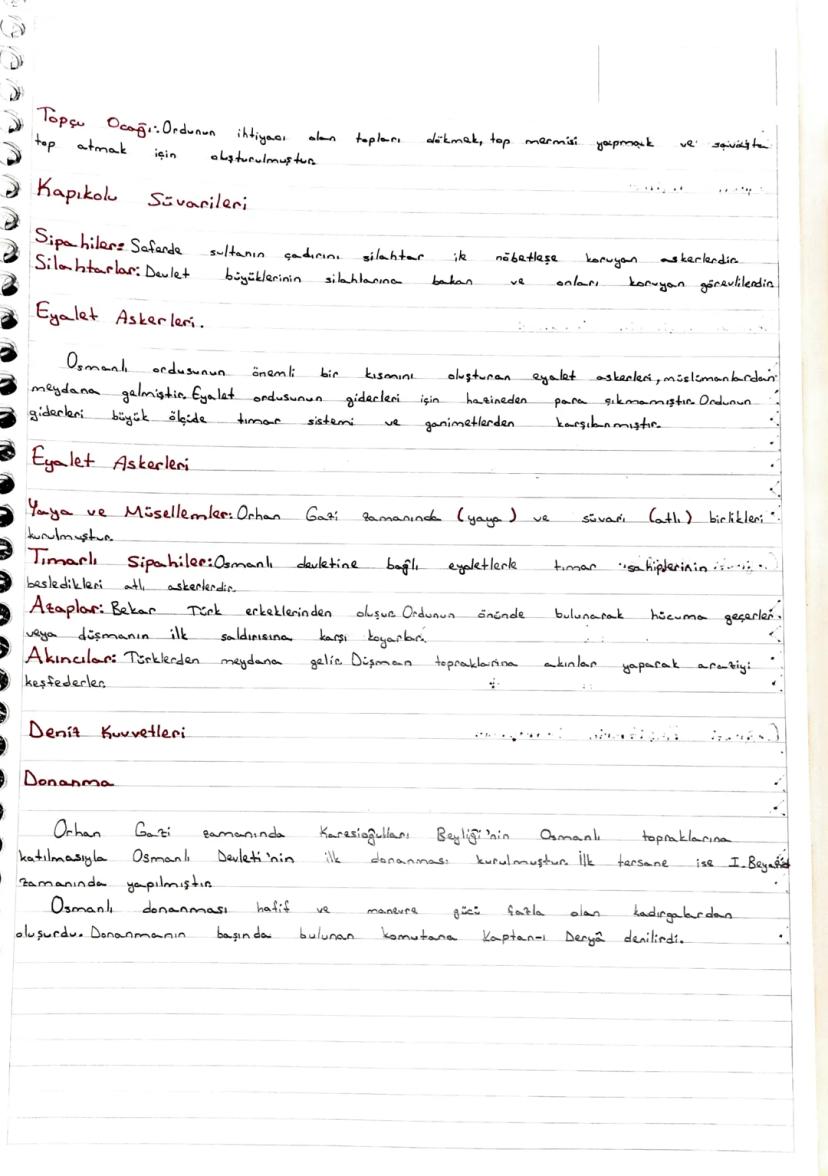 Topçu Ocağı: Ordunun ihtiyacı olan topları dökmek, top mermisi yapmak ve savaşta
top atmak için oluşturulmuştur.
Kapıkolu Süvarileri
Sipahiler: Saferde sultanın çadırını silahtar ile nöbetleşe koruyan askerlerdir.
Silahtarlar: Devlet büyüklerinin silahlarına bakan ve onları koruyan görevlilerdir.
Eyalet Askerleri.
Osmanlı ordusunun önemli bir kısmını oluşturan eyalet askerleri, müslümanlardan
meydana gelmiştir. Eyalet ordusunun giderleri için hazineden para çıkmamıştır. Ordunun
giderleri büyük ölçüde tımar sistemi ve ganimetlerden karşılanmıştır.
Eyalet Askerleri
Yaya ve Müsellemler: Orhan Gazi zamanında (yaya) ve süvari (atlı) birlikleri
kurulmuştur.
Tımarlı Sipahiler: Osmanlı devletine bağlı eyaletlerle tımar sahiplerinin
besledikleri atlı askerlerdir.
Azaplar: Bekar Türk erkeklerinden oluşur. Ordunun önünde bulunarak hücuma geçerler.
veya düşmanın ilk saldırısına karşı koyarlar.
Akıncılar: Türklerden meydana gelir. Düşman topraklarına akınlar yaparak araziyi
keşfederler.
Deniz Kuvvetleri
Donanma
Orhan Gazi zamanında Karesioğulları Beyliği'nin Osmanlı topraklarına
katılmasıyla Osmanlı Devleti'nin ilk donanması kurulmuştur. İlk tersane ise I. Beyazid
zamanında yapılmıştır.
Osmanlı donanması hafif ve manevra gücü fazla olan kadırgalardan
oluşurdu. Donanmanın başında bulunan komutana Kaptan-ı Deryâ denilirdi.